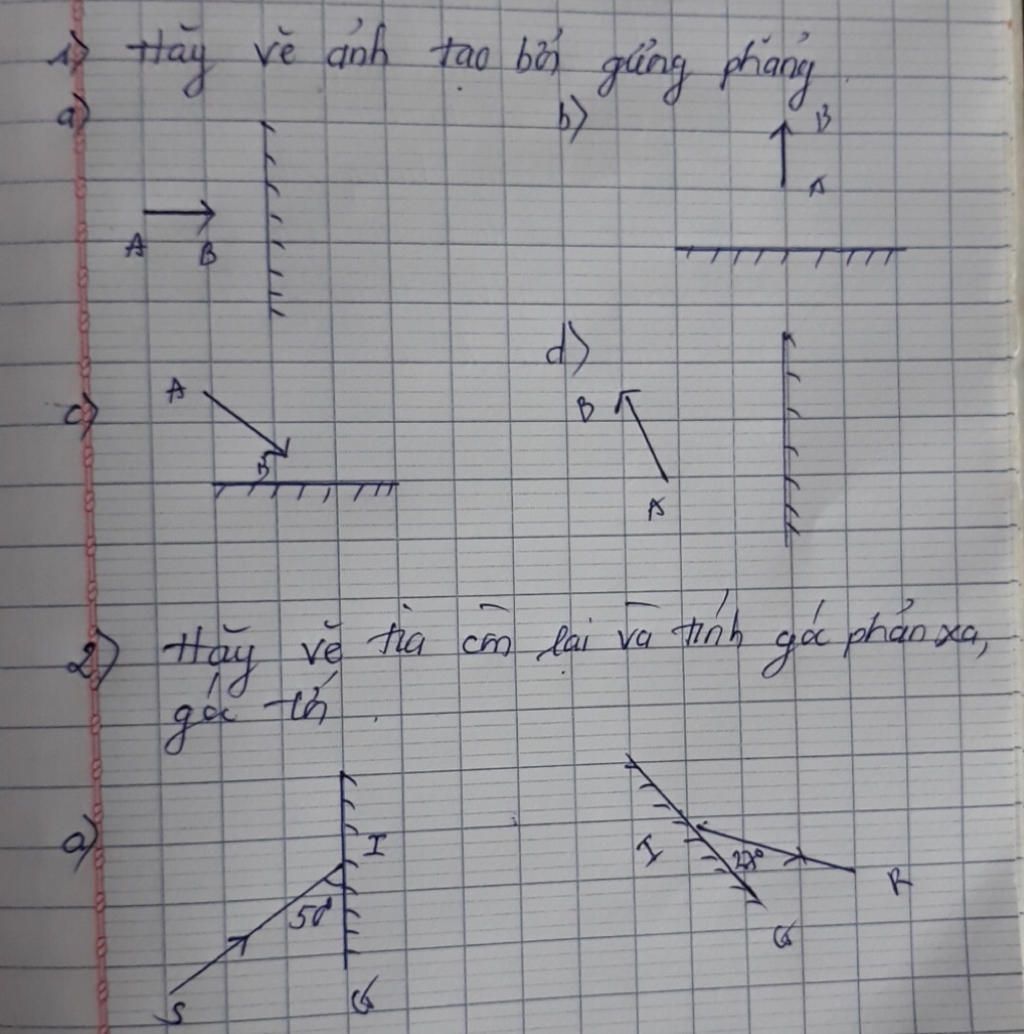 1) Hãy vẽ ảnh tạo bởi gương phẳng.
a) b) B
A
A B
d)
A
c) B
B
A
2) Hãy vẽ tia còn lại và tính góc phản xạ,
góc tới.
a) I I R
50° G
S G